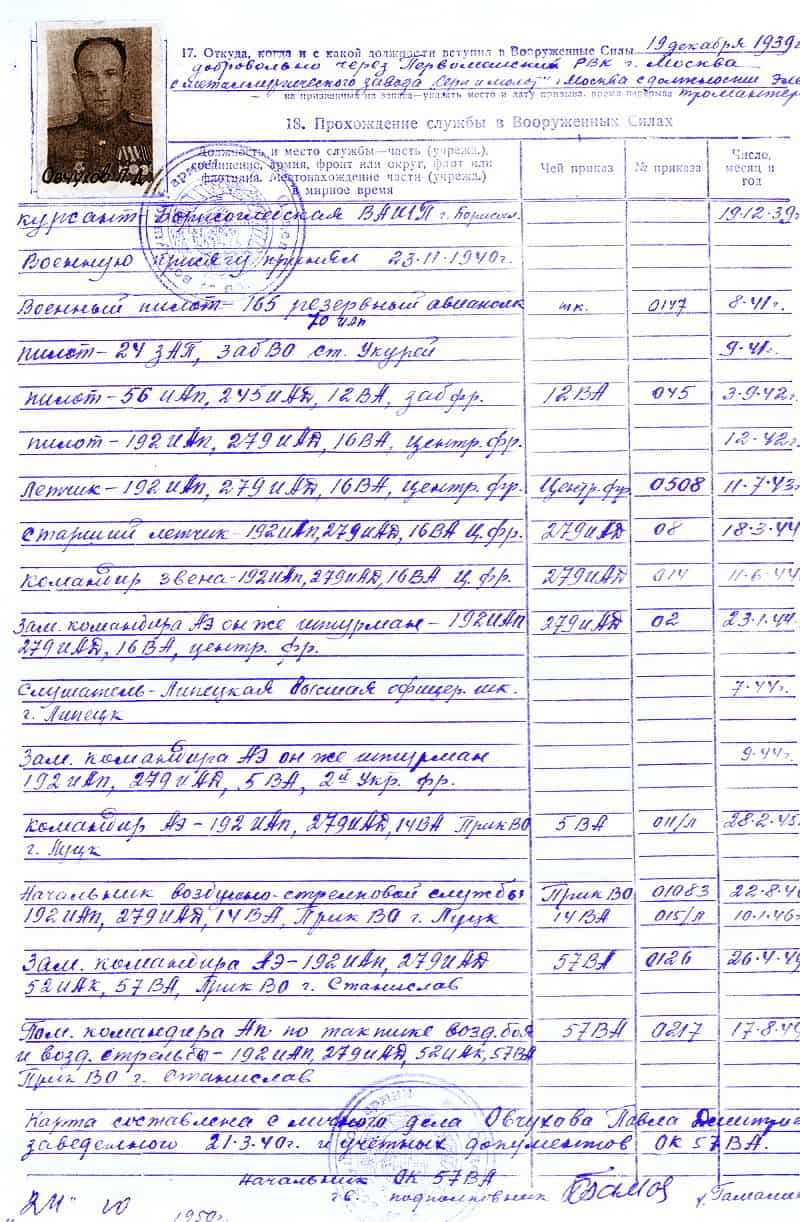 17. Откуда, когда и с какой должности вступил в Вооруженные Силы 19 декабря 1939
добровольно через Первомайский РВК г. Москва
с металлургического завода "Серп и молот" г. Москва с должности
на призванных из запаса—указать место и дату призыва, время перерыва
18. Прохождение службы в Вооруженных Силах
Должность и место службы—часть (учрежд.), соединение, армия, фронт или округ, флот или флотилия. Местонахождение части (учрежд.) в мирное время
Чей приказ
№ приказа
Число, месяц и год
Овчухов П.Д.
курсант- Борисоглебская ВАШП г. Борисогл. 19.12.39г
Военную присягу принял 23.11.1940г.
Военный пилот- 165 резервный авиаполк пк. 0147 8.41г.
70 иАп
пилот- 24 ЗАП, ЗабВО ст. Укурей 9.41г.
пилот- 56 иАп, 245 иАД, 12ВА, Заб фр. 12ВА 045 3.9.42г.
пилот- 192 иАп, 279 иАД, 16ВА, центр. фр. 12.42г.
Летчик- 192 иАп, 279 иАД, 16ВА, центр. фр. Центр. фр 0508 11.7.43г
старший летчик- 192 иАп, 279 иАД, 16ВА ц. фр. 279 иАД 08 18.3.44
командир звена- 192 иАп, 279 иАД, 16ВА ц. фр. 279 иАД 014 11.6.44
Зам. командира АЭ он же штурман- 192 иАп 279 иАД 02 23.1.44
279 иАД, 16ВА, центр. фр.
Слушатель- Липецкая высшая офицер. шк. 7.44г.
г. Липецк
Зам. командира АЭ он же штурман 9.44г.
192 иАп, 279 иАД, 5ВА, 2й Укр. фр.
командир АЭ- 192 иАп, 279 иАД, 14ВА ПрикВО 5ВА 011/л 28.2.45
г. Луцк
Начальник воздушно-стрелковой службы ПрикВО 01083 22.8.4
192 иАп, 279 иАД, 14ВА, ПрикВО г. Луцк 14ВА 015/л 10.1.46
Зам. командира АЭ- 192 иАп, 279 иАД 57ВА 0126 26.4.49
52 иАк, 57ВА, ПрикВО г. Станислав
Пом. командира Ап по тактике возд. боя 57ВА 0217 17.8.49
и возд. стрельбы- 192 иАп, 279 иАД, 52 иАк, 57ВА
ПрикВО г. Станислав
Карта составлена с личного дела Овчухова Павла Дмитрие
заведенного 21.3.40г. и учетных документов ОК 57ВА.
Начальник ОК 57ВА
г.с. подполковник
1950г.